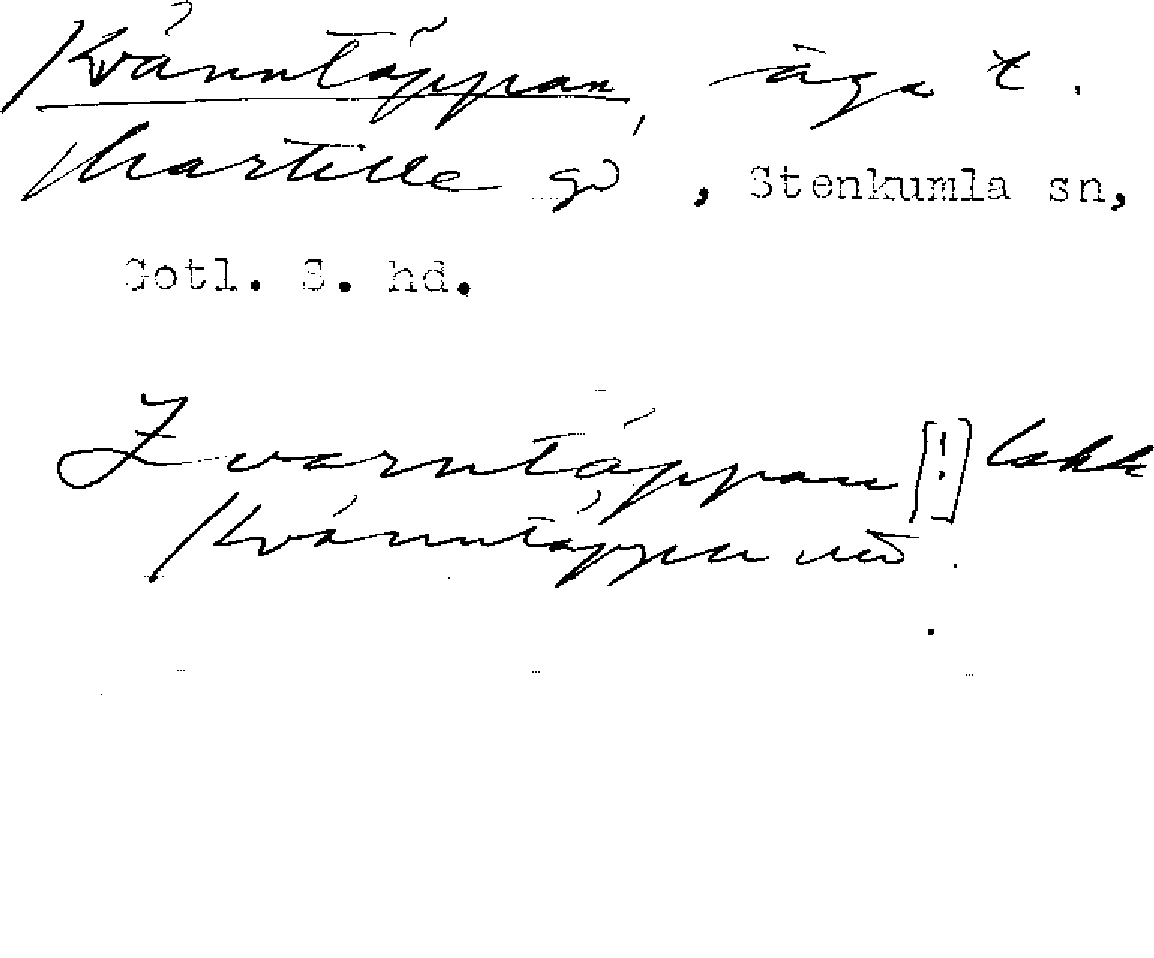 Kvänntäppan, äga t.
Martille gd, Stenkumla sn,
Gotl. S. hd.
Qvarntäppan [!] Lskk
Kvänntäppan